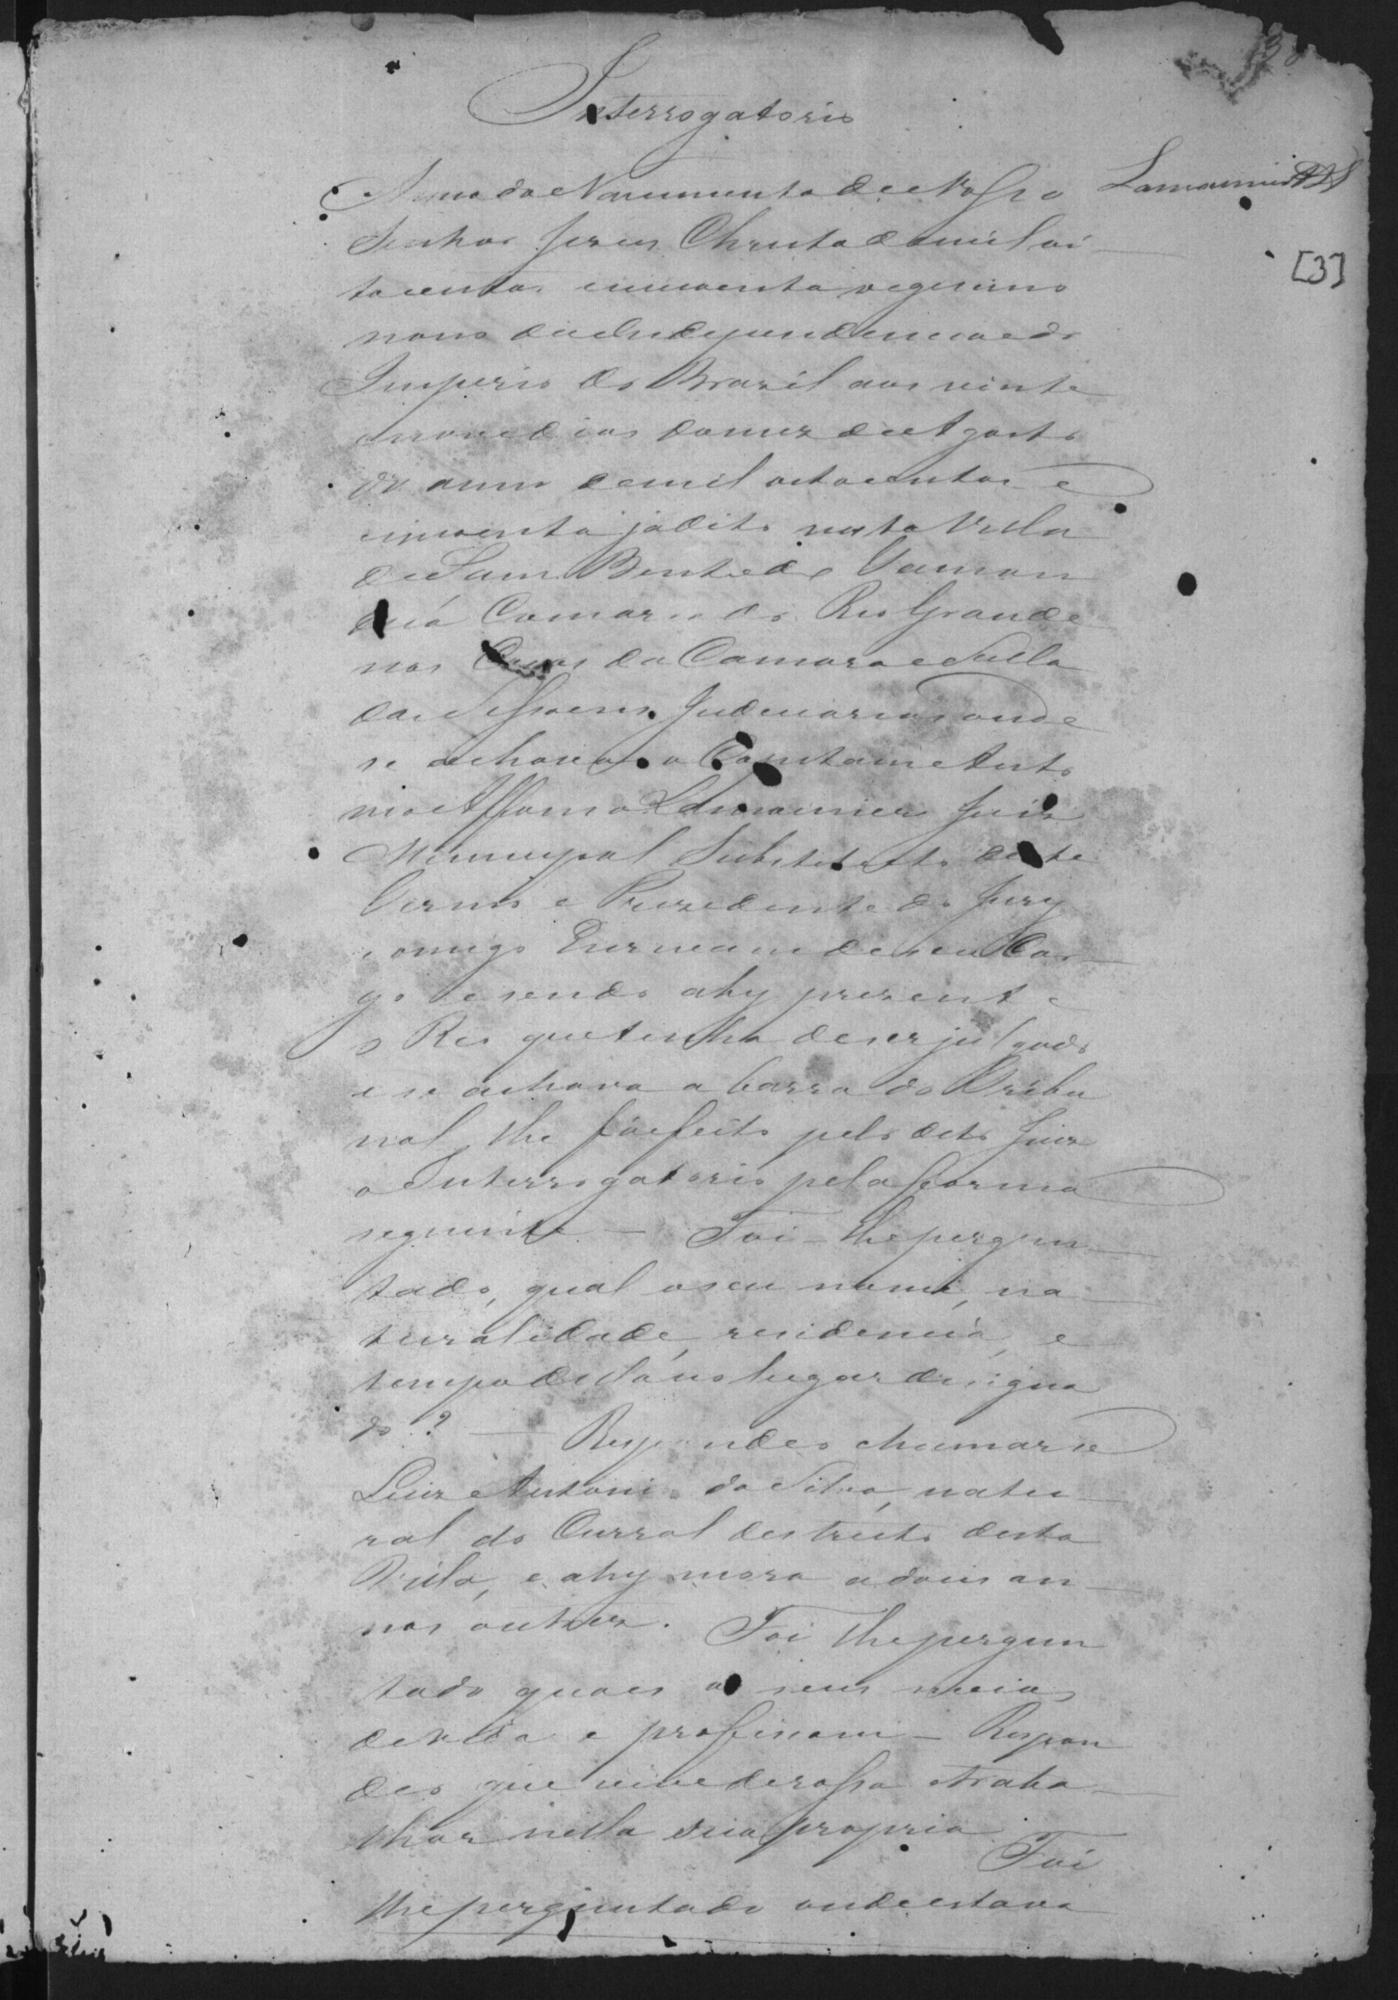 Interrogatorio
Lamounier
[3]
Anno do Nascimento de Nosso
Senhor Jesus Christo de mil oi-
tocentos cincoenta vigesimo
nono da Independencia e do
Imperio do Brazil aos vinte
e nove dias do mez de Agosto
do anno de mil oitocentos e
cincoenta já dito nesta Villa
de Sam Bento do Taman
duá Comarca do Rio Grande
nas Cazas da Camara e Salla
das Sessoens Judiciarias onde
se achava o Capitam Anto
nio Affonso Lamounier Juiz
Municipal Substituto deste
Termo e Prezidente do Jury
comigo Escrivam de seu Car-
go e sendo ahy prezente
o Reo que tinha de ser julgado
e se achava a barra do Tribu
nal, lhe foi feito pelo dito Juiz
o Interrogatorio pela forma
seguinte — Foi-lhe pergun-
tado, qual o seu nome, na-
turalidade, residencia, e
tempo della no lugar designa
do? — Respondeo chamar se
Luiz Antonio da Silva, natu-
ral do Curral destricto desta
Villa, e ahy mora a dous an-
nos outres. Foi lhe pergun
tado quaes os seus meios
de vida e profissam — Respon
deo que vive de rossa traba-
lhar nella sua propria.
Foi
lhe perguntado onde estava